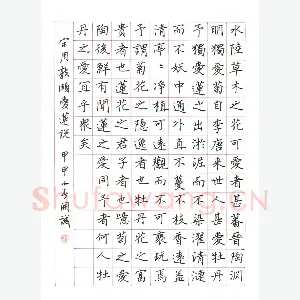 水陸草木之花可愛者甚蕃晉陶淵
明獨愛菊自李唐來世人甚愛牡丹
予獨愛蓮之出淤泥而不染濯清漣
而不妖中通外直不蔓不枝香遠益
清亭亭凈植可遠觀而不可褻玩焉
予謂菊花之隱逸者也牡丹花之富
貴者也蓮花之君子者也噫菊之愛
陶後鮮有聞蓮之愛同予者何人牡
丹之愛宜乎眾矣
宋周敦頤愛蓮說 甲申
Shufawang.cn